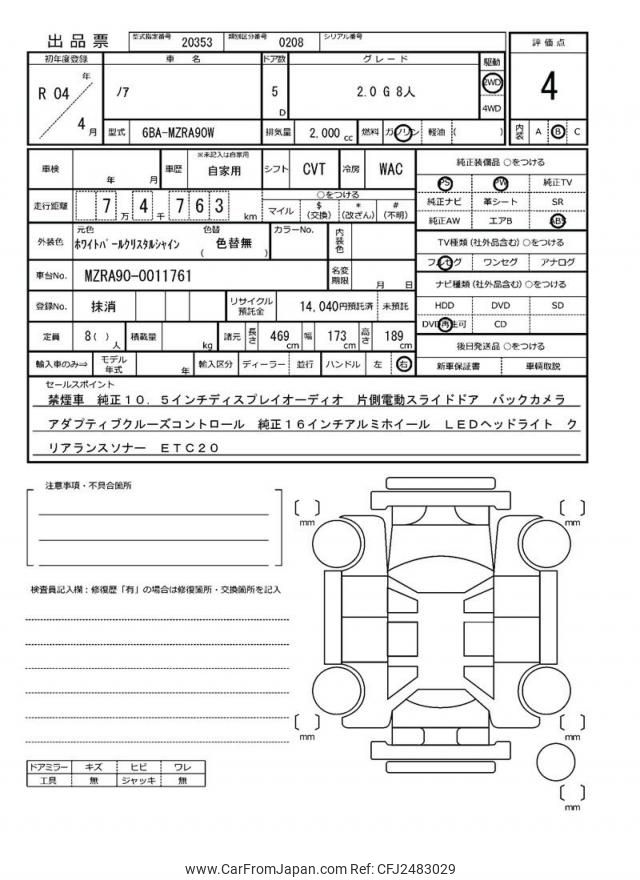 出品票 型式指定番号 20353 類別区分番号 0208 シリアル番号
評価点
4
内装 A B C
初年度登録 車名 ドア数 グレード 駆動
R 04 年 4 月
ノア 5 D 2.0 G 8人 2WD 4WD
型式 6BA-MZRA90W 排気量 2,000 cc 燃料 ガソリン 軽油 ( )
車検 年 月 車歴 ※未記入は自家用 自家用 シフト CVT 冷房 WAC
走行距離 7 万 4 千 7 6 3 km ○をつける
マイル $(交換) *(改ざん) #(不明)
外装色 元色 色替 カラーNo. 内装色
ホワイトパールクリスタルシャイン ( 色替無 )
車台No. MZRA90-0011761 名変期限 月 日
登録No. 抹消 リサイクル預託金 14,040円預託済 未預託
定員 8( ) 人 積載量 kg 諸元 長さ 469 cm 幅 173 cm 高さ 189 cm
輸入車のみ⇒ モデル年式 年 輸入区分 ディーラー 並行 ハンドル 左 右
純正装備品 ○をつける
PS PW 純正TV
純正ナビ 革シート SR
純正AW エアB ABS
TV種類(社外品含む)○をつける
フルセグ ワンセグ アナログ
ナビ種類(社外品含む)○をつける
HDD DVD SD
DVD再生可 CD
後日発送品 ○をつける
新車保証書 車輌取説
セールスポイント
禁煙車 純正10.5インチディスプレイオーディオ 片側電動スライドドア バックカメラ
アダプティブクルーズコントロール 純正16インチアルミホイール LEDヘッドライト ク
リアランスソナー ETC20
注意事項・不具合箇所
検査員記入欄:修復歴「有」の場合は修復箇所・交換箇所を記入
ドアミラー キズ ヒビ ワレ
工具 無 ジャッキ 無
[ ] mm
[ ] mm
[ ] mm
[ ] mm
[ ] mm
www.CarFromJapan.com Ref: CFJ2483029